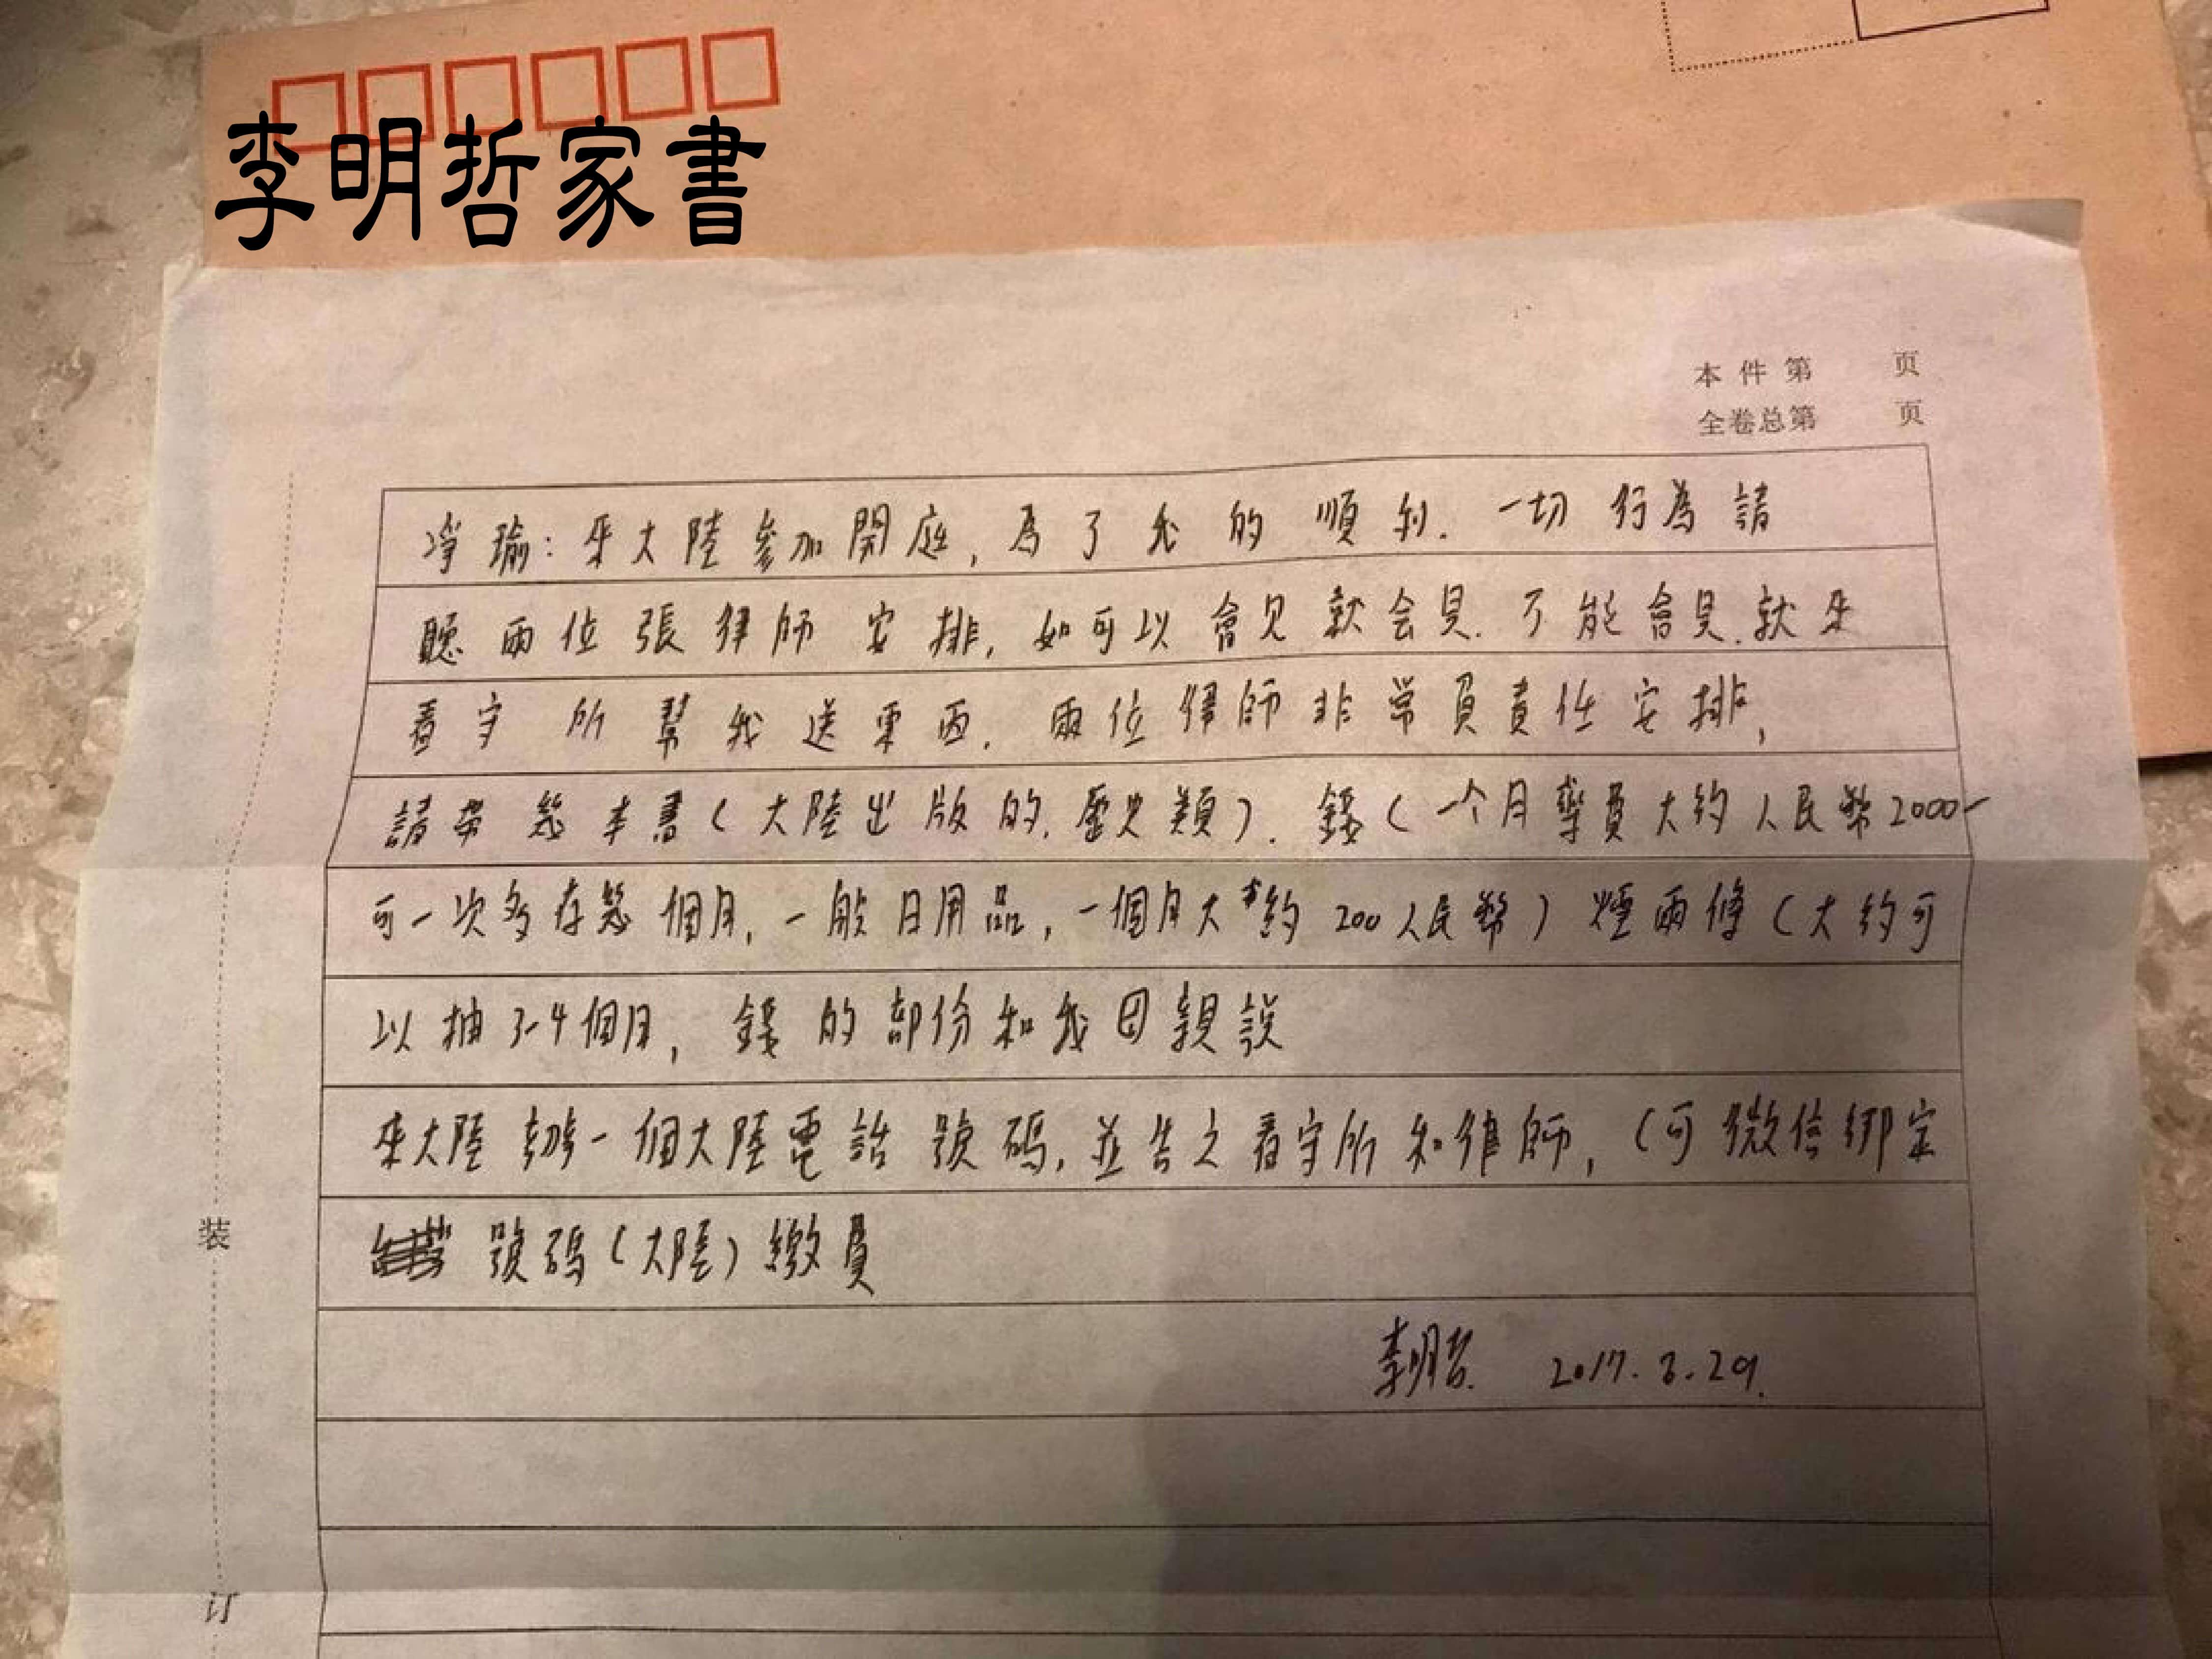 李明哲家書
本件第 页
全卷总第 页
淨瑜：來大陸參加開庭，為了我的順利．一切行為請
聽兩位張律師安排，如可以會見就会見．不能會見．就來
看守所幫我送東西．兩位律師非常負責任安排，
請帶幾本書（大陸出版的．歷史類）．錢（一个月 大約人民幣2000-
可一次多存幾個月，一般日用品，一個月大約200人民幣）煙兩條（大約可
以抽3-4個月，錢的部份和我母親説
來大陸辦一個大陸電話號碼，並告之看守所和律師，（可微信綁定
號碼（大陸）繳費
李明哲． 2017．8．29．
装
订